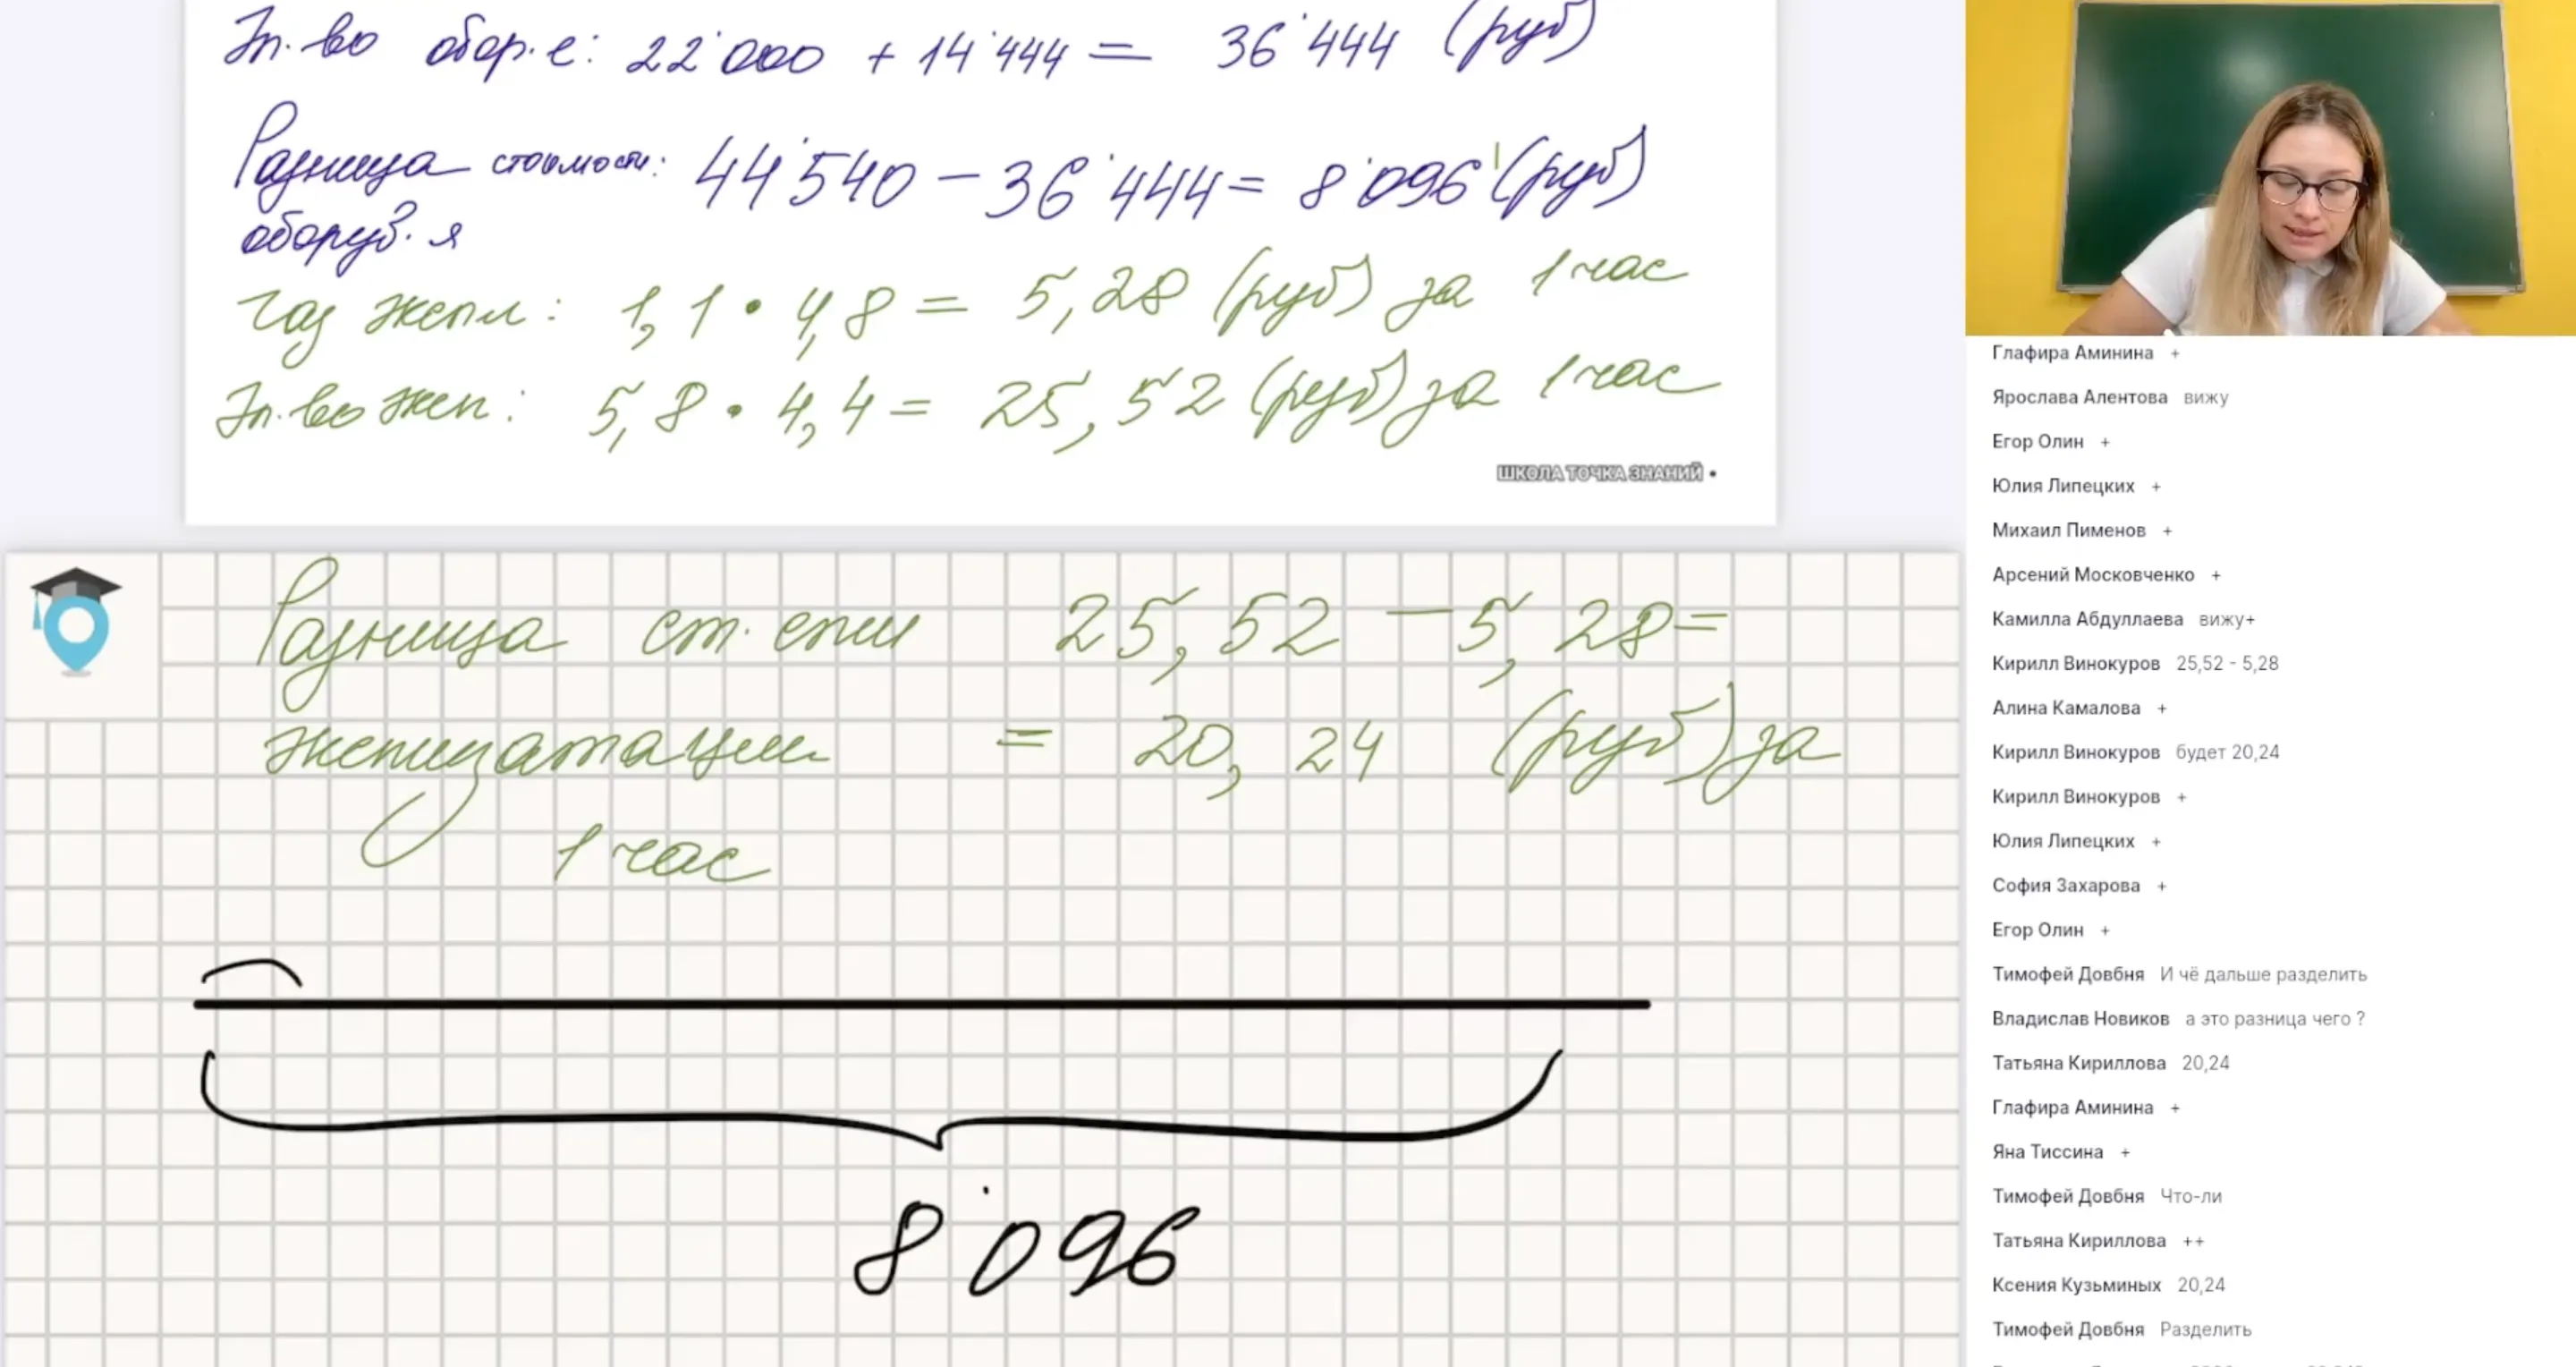 Эл.-во обор.е: 22 000 + 14 444 = 36 444 (руб)
Разница стоимости: 44 540 – 36 444 = 8 096 (руб)
оборуд.я
Газ экспл: 1,1 • 4,8 = 5,28 (руб) за 1 час
Эл.-во эксп: 5,8 • 4,4 = 25,52 (руб) за 1 час
ШКОЛА ТОЧКА ЗНАНИЙ •
Разница ст. 25,52 – 5,28 =
эксплуатации = 20,24 (руб) за
1 час
8 096
Глафира Аминина +
Ярослава Алентова вижу
Егор Олин +
Юлия Липецких +
Михаил Пименов +
Арсений Московченко +
Камилла Абдуллаева вижу+
Кирилл Винокуров 25,52 - 5,28
Алина Камалова +
Кирилл Винокуров будет 20,24
Кирилл Винокуров +
Юлия Липецких +
София Захарова +
Егор Олин +
Тимофей Довбня И чё дальше разделить
Владислав Новиков а это разница чего ?
Татьяна Кириллова 20,24
Глафира Аминина +
Яна Тиссина +
Тимофей Довбня Что-ли
Татьяна Кириллова ++
Ксения Кузьминых 20,24
Тимофей Довбня Разделить